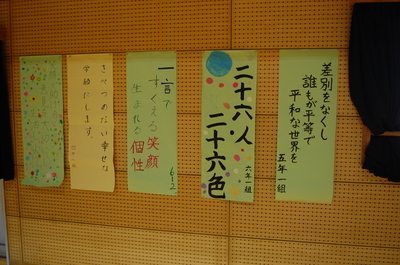 差別をなくし
誰もが平等で
平和な世界を
五年一組
二十六人
二十六色
六年一組
一言で
すくえる笑顔
生まれる個性
6-2
さべつのない幸せな
学校にします。